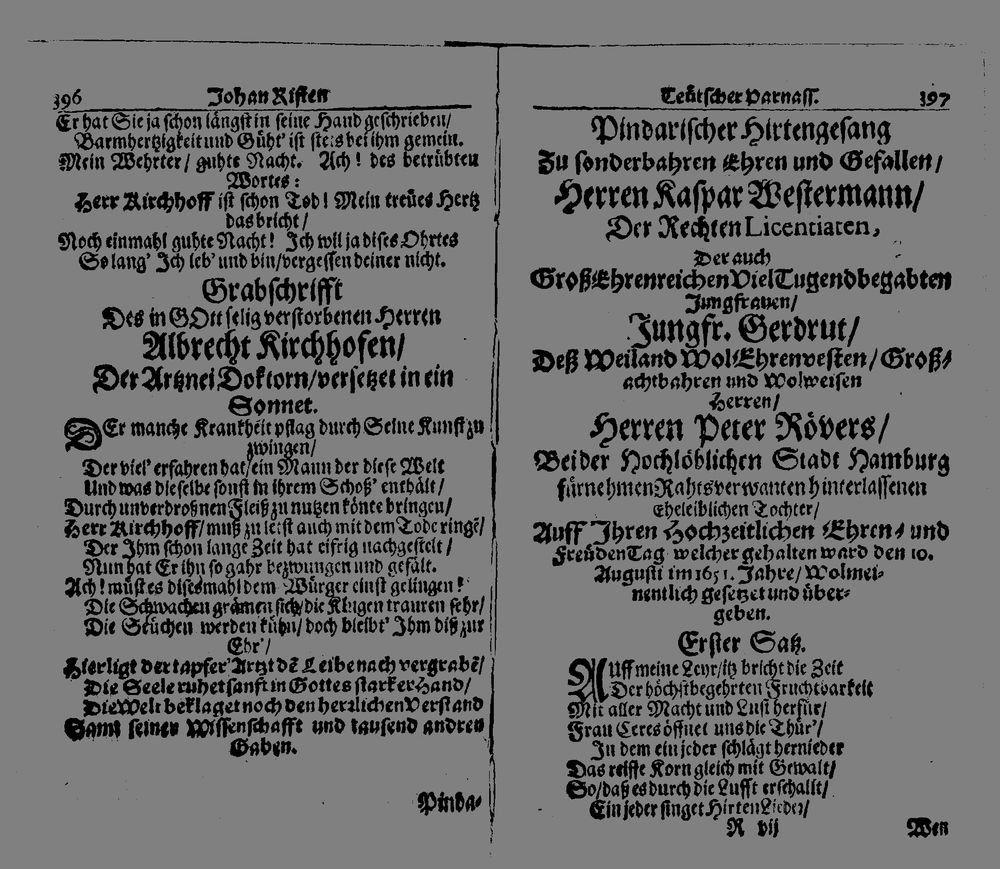 396 Johan Risten
Er hat Sie ja schon längst in seine Hand geschrieben/
Barmhertzigkeit und Güht' ist stets bei ihm gemein.
Mein Wehrter/ guhte Nacht. Ach! des betrübten
Wortes:
Herr Kirchhoff ist schon Tod! Mein treües Hertz
das bricht/
Noch einmahl guhte Nacht! Ich wil ja dises Ohrtes
So lang' Ich leb' und bin/vergessen deiner nicht.
Grabschrifft
Des in GOtt selig verstorbenen Herren
Albrecht Kirchhofen/
Der Artznei Doktorn/versetzet in ein
Sonnet.
DEr manche Krankheit pflag durch Seine Kunst zu
zwingen/
Der viel' erfahren hat/ein Mann der diese Welt
Und was dieselbe sonst in ihrem Schoß' enthält/
Durch unverdroßnen Fleiß zu nutzen könte bringen/
Herr Kirchhoff/muß zu letst auch mit dem Tode ringē/
Der Ihm schon lange Zeit hat eifrig nachgestelt/
Nun hat Er ihn so gahr bezwungen und gefält.
Ach! müst es disesmahl dem Würger einst gelingen!
Die Schwachen grämen sich/die Klugen trauren sehr/
Die Seüchen werden kühn/doch bleibt' Ihm diß zur
Ehr'/
Hier ligt der tapfer' Artzt dē Leibe nach vergrabē/
Die Seele ruhet sanft in Gottes starker Hand/
Die Welt beklaget noch den herzlichen Verstand
Samt seiner Wissenschafft und tausend andren
Gaben.
Pinda-
Teütscher Parnass. 397
Pindarischer Hirtengesang
Zu sonderbahren Ehren und Gefallen/
Herren Kaspar Westermann/
Der Rechten Licentiaten,
Der auch
Groß Ehrenreichen Viel Tugendbegabten
Jungfrauen/
Jungfr. Gerdrut/
Deß Weiland Wol Ehrenvesten/ Groß-
achtbahren und Wolweisen
Herren/
Herren Peter Rövers/
Bei der Hochlöblichen Stadt Hamburg
fürnehmen Rahtsverwanten hinterlassenen
Eheleiblichen Tochter/
Auff Ihren Hochzeitlichen Ehren- und
Freüden Tag welcher gehalten ward den 10.
Augusti im 1651. Jahre/ Wolmei-
nentlich gesetzet und über-
geben.
Erster Satz.
AUff meine Leyr/itz bricht die Zeit
Der höchstbegehrten Fruchtbarkeit
Mit aller Macht und Lust herfür/
Frau Ceres öffnet uns die Thür'/
In dem ein jeder schlägt hernieder
Das reiffe Korn gleich mit Gewalt/
So/daß es durch die Lufft erschallt/
Ein jeder singet Hirten Lieder/
R vij Wen